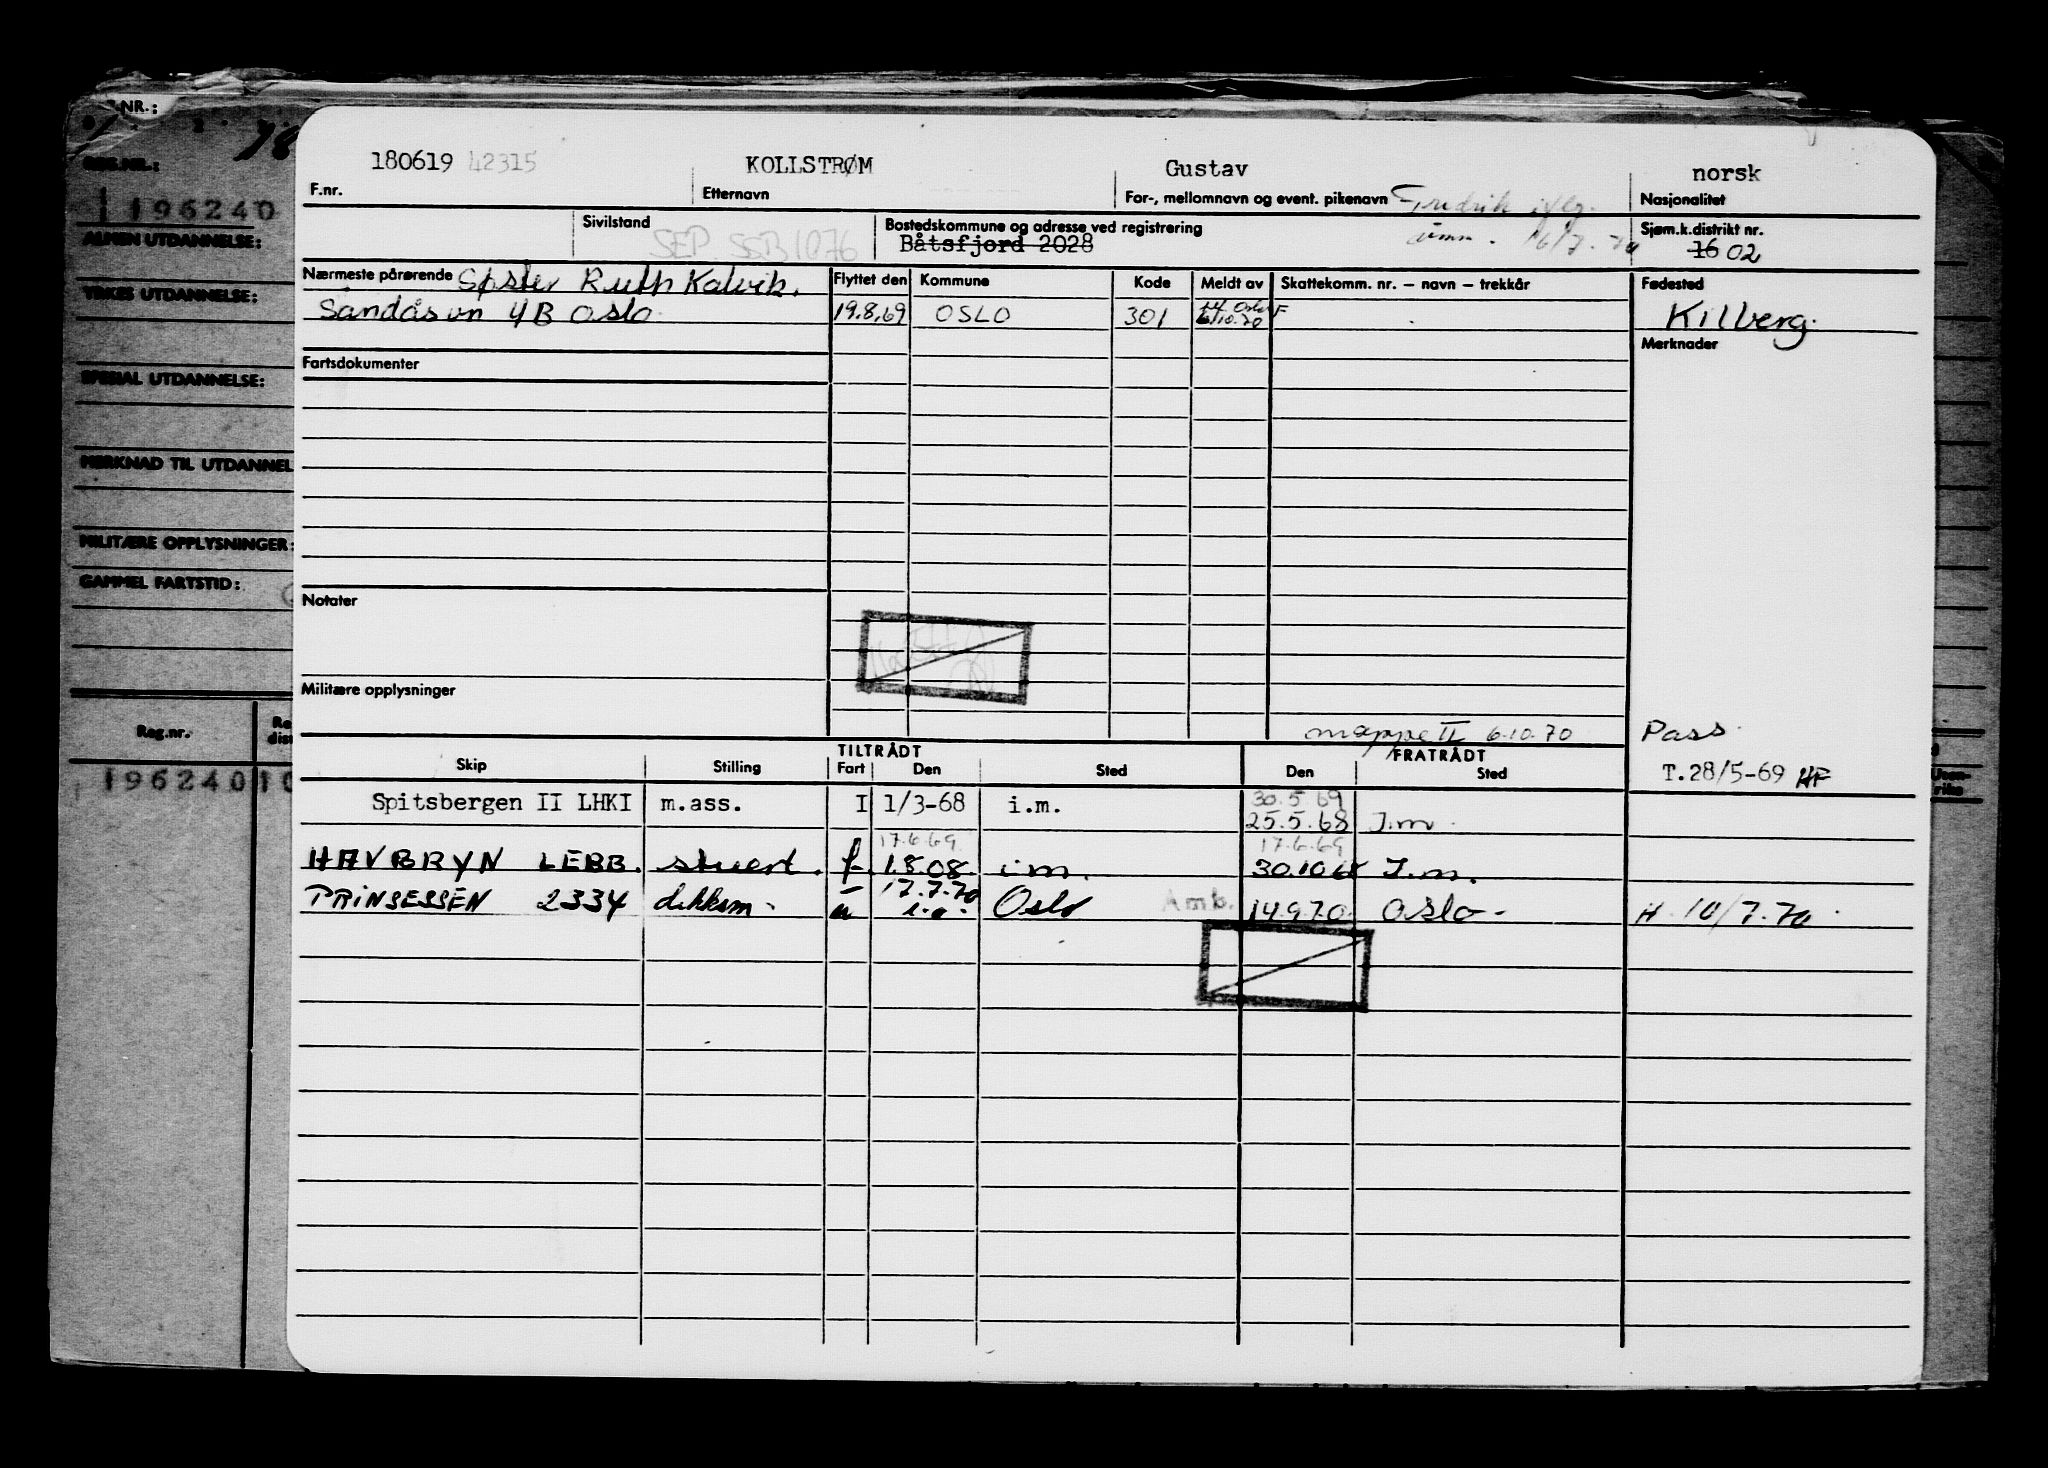 -NR.:
78
REG.NR.:
196240
ALMEN UTDANNELSE:
YRKES UTDANNELSE:
SPESIAL UTDANNELSE:
MERKNAD TIL UTDANNEL
MILITÆRE OPPLYSNINGER:
GAMMEL FARTSTID:
Reg.nr.
Re
dist
196240 10
180619 42315 KOLLSTRØM Gustav norsk
F.nr. Etternavn For-, mellomnavn og event. pikenavn Fredrik iflg. Nasjonalitet
Sivilstand SEP. SSB 1076 Bostedskommune og adresse ved registrering 16/7.70 Sjøm.k.distrikt nr.
Båtsfjord 2028 16 02
Nærmeste pårørende Søster Ruth Kalvik. Flyttet den Kommune Kode Meldt av Skattekomm. nr. — navn — trekkår Fødested
Sandåsvn 4B Oslo 19.8.69 OSLO 301 6/10.70 Kilberg.
Merknader
Fartsdokumenter
Notater
Militære opplysninger
mappe II 6.10.70 Pass
TILTRÅDT FRATRÅDT
Skip Stilling Fart Den Sted Den Sted T.28/5-69 HF
Spitsbergen II LHKI m.ass. I 1/3-68 i.m. 30.5.69
25.5.68 I.m.
17.6.69 17.6.69
HAVBRYN LEBB. stuert. f. 1.8.08. i.m. 30.10.68 I.m.
PRINSESSEN 2334 dekksm. 17.7.70 Oslo Amb. 14.9.70 Oslo - H. 10/7.70